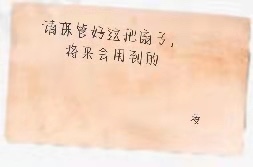 请保管好这把扇子,
将来会用到的